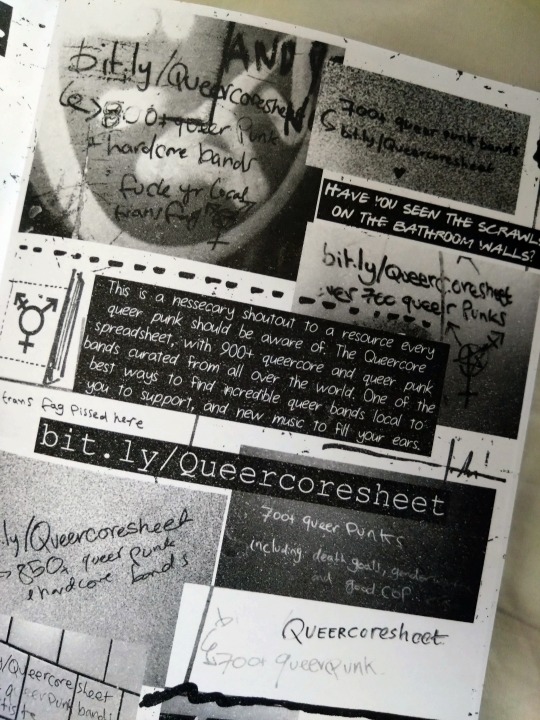 AND
bit.ly/Queercoreshee
800+ queer punk
+ hardcore bands
fuck yr local
trans fag
700+ queer punk bands
bit.ly/Queercoresheet
HAVE YOU SEEN THE SCRAWLS
ON THE BATHROOM WALLS?
bit.ly/Queercoresheet
over 700 queer punks
This is a nessecary shoutout to a resource every
queer punk should be aware of. The Queercore
spreadsheet, with 900+ queercore and queer punk
bands curated from all over the world. One of the
best ways to find incredible queer bands local to
you to support, and new music to fill your ears.
trans fag pissed here
bit.ly/Queercoresheet
.ly/Queercoresheet
850+ queer punk
+ hardcore bands
700+ queer punks
(including death goals,
and good cop
QUEERCOresheet
700+ queerpunk
/Queercoresheet
queer punk bands